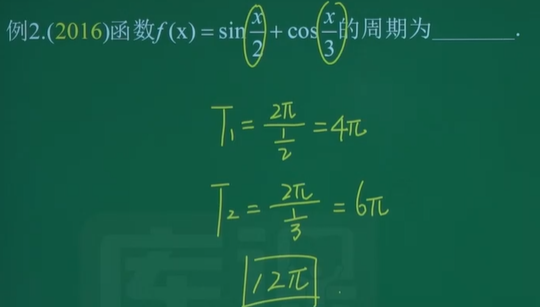 例2.(2016)函数f(x)=sin x/2 + cos x/3的周期为______.
T₁ = 2π / 1/2 = 4π
T₂ = 2π / 1/3 = 6π
12π